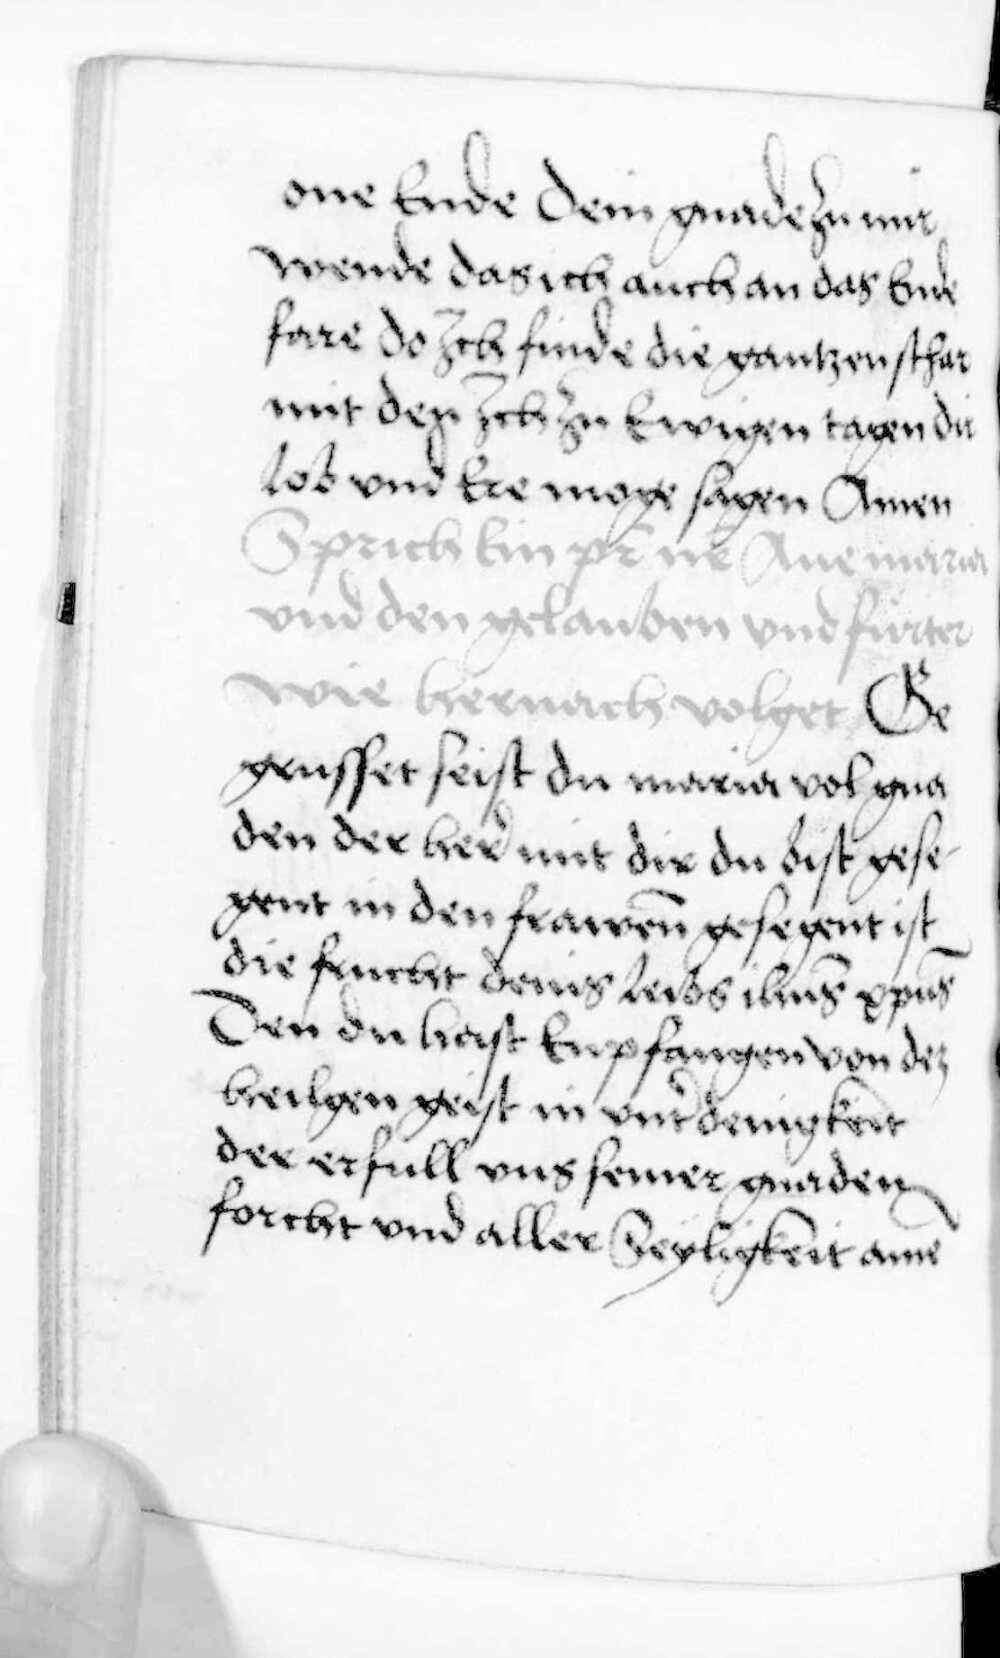 one Ende Dein gnade zu mir
wende das ich auch an das Ende
fare do Ich finde die gantzen schar
mit den Ich zu Ewigen tagen dir
lob vnd Ere moge sagen Amen
Sprich Ein pr̄ nr̄ Aue maria
vnd den gelauben vnd fürter
wie hernach volget Ge
grusset seist du maria vol gna
den der herr mit dir du bist gese
gent in den frawen̄ gesegent ist
die frucht deins leibs ihūs xpūs
Den du hast Enpfangen von dez
heilgen geist in
der erfull vns seiner gnaden
forcht vnd aller Seyligkeit amē